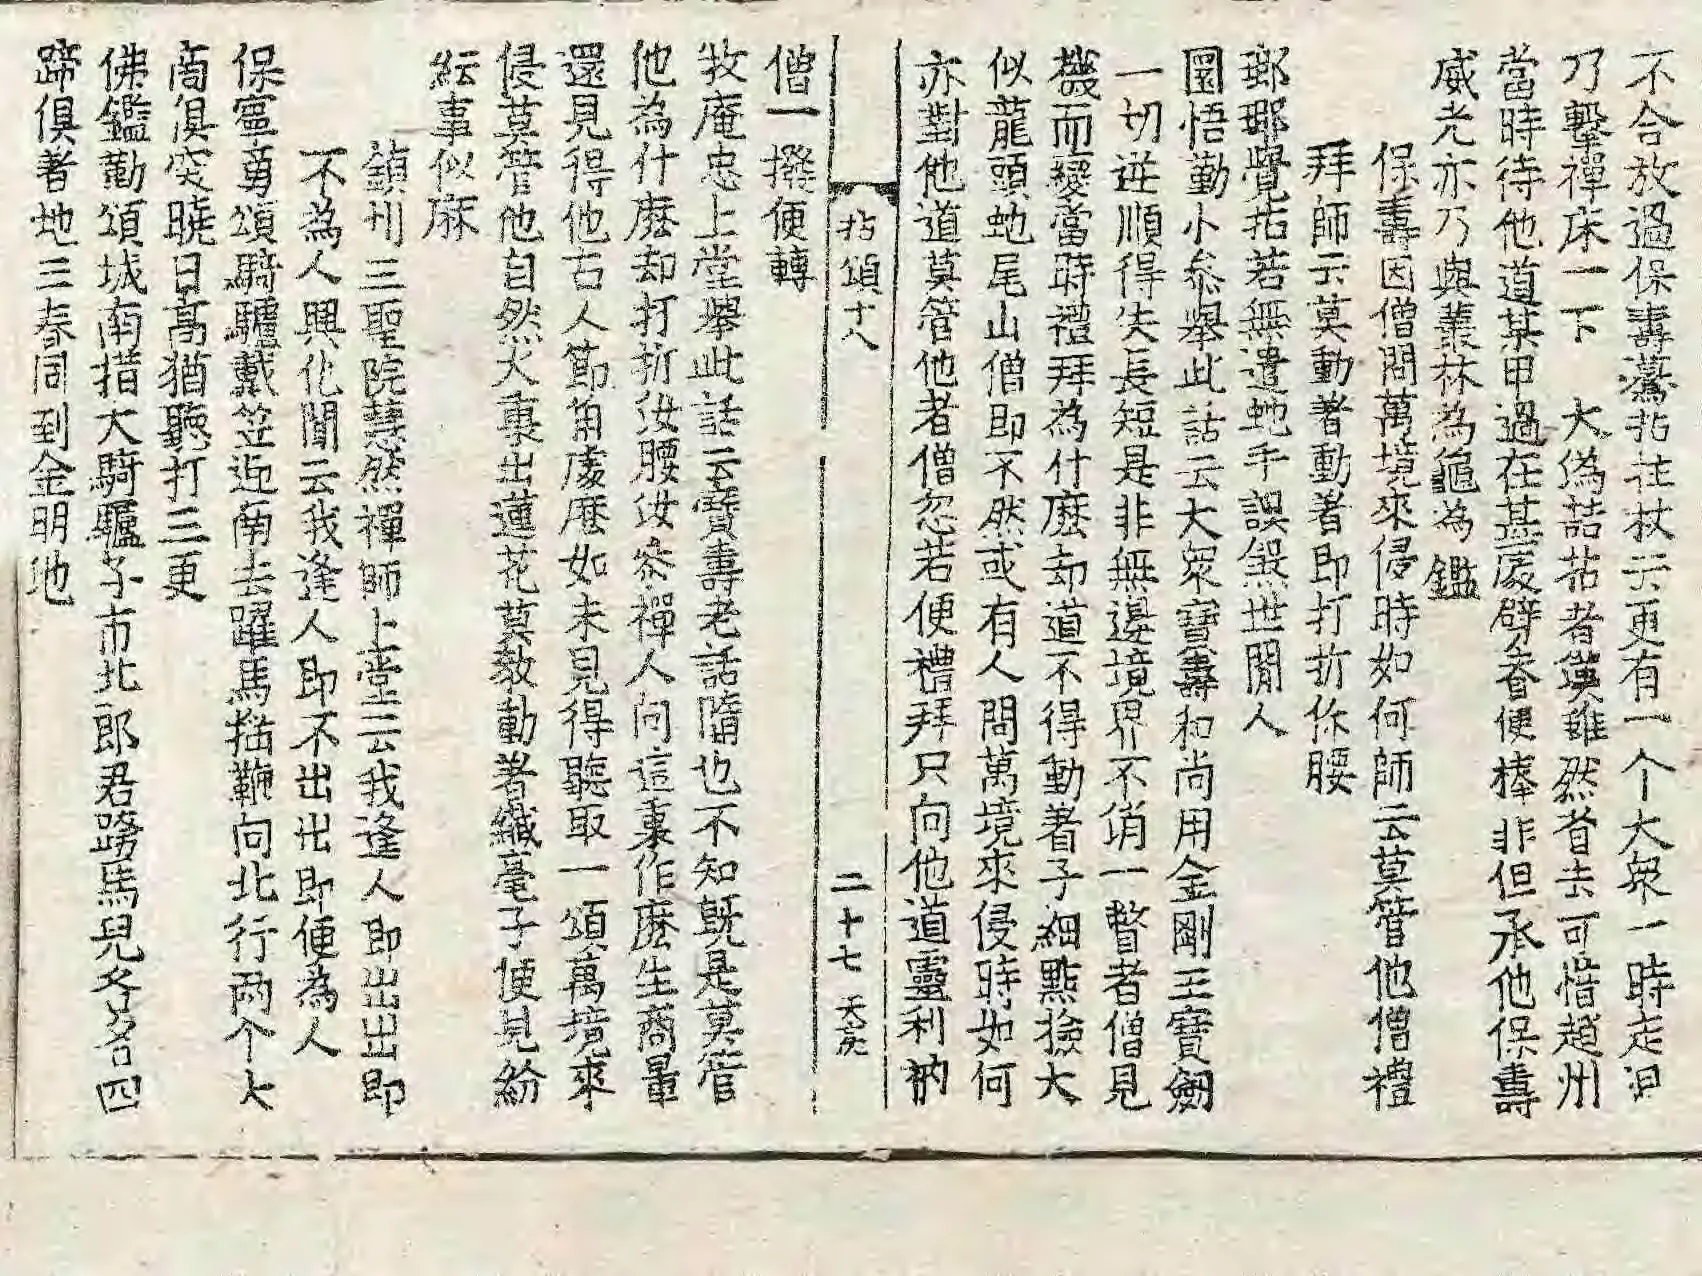 不合放過保壽驀拈拄杖云更有一个大衆一時走泪
乃擊禪床一下　大潙喆拈者漢雖然省去可惜趙州
當時待他道某甲過在甚處劈脊便棒非但承他保壽
威光亦乃與叢林為龜為鑑
保壽因僧問萬境來侵時如何師云莫管他僧禮
拜師云莫動著動著即打折你腰
瑯瑘覺拈若無遣虵手誤煞世閒人
圜悟勤小叅舉此話云大衆寶壽和尚用金剛王寶劒
一切逆順得失長短是非無邊境界不消一瞥者僧見
機而變當時禮拜為什麽却道不得動著子細點撿大
似龍頭虵尾山僧即不然或有人問萬境來侵時如何
亦對他道莫管他者僧忽若便禮拜只向他道靈利衲
拈頌十八　二十七　天亮
僧一撥便轉
牧庵忠上堂舉此話云寶壽老話隨也不知旣是莫管
他為什麽却打折汝腰汝叅禪人向這裏作麽生商量
還見得他古人節角處麽如未見得聽取一頌萬境來
侵莫管他自然火裏出蓮花莫敎動著纖毫子便見紛
紜事似麻
鎭州三聖院慧然禪師上堂云我逢人即出出即
不為人興化聞云我逢人即不出出即便為人
保寧勇頌騎驢戴笠迎南去躍馬揺鞭向北行两个大
啇俱突曉日髙猶聽打三更
佛鑑勤頌城南措大騎驢子市北郎君跨馬兒各各四
蹄俱著地三春同到金明池